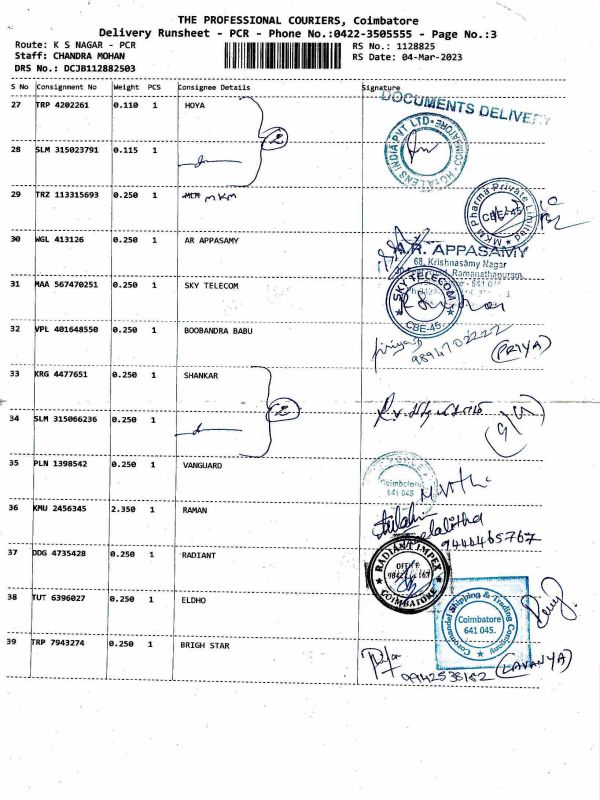 THE PROFESSIONAL COURIERS, Coimbatore
Delivery Runsheet - PCR - Phone No.:0422-3505555 - Page No.:3
Route: K S NAGAR - PCR RS No.: 1128825
Staff: CHANDRA MOHAN RS Date: 04-Mar-2023
DRS No.: DCJB112882503
S No Consignment No Weight PCS Consignee Details Signature
DOCUMENTS DELIVERY
27 TRP 4202261 0.110 1 HOYA
2
28 SLM 315023791 0.115 1
29 TRZ 113315693 0.250 1 MCM MKM
MKM Pharma Private Limited
CBE-45
30 WGL 413126 0.250 1 AR APPASAMY
A.R. APPASAMY
68, Krishnasamy Nagar
Ramanathapuram
31 MAA 567470251 0.250 1 SKY TELECOM
SKY TELECOM
CBE-45
32 VPL 401648550 0.250 1 BOOBANDRA BABU
Priya
9894702222
(PRIYA)
33 KRG 4477651 0.250 1 SHANKAR
2
34 SLM 315066236 0.250 1
35 PLN 1398542 0.250 1 VANGUARD
Coimbatore
641 045
36 KMU 2456345 2.350 1 RAMAN
lalitha
9444465767
37 DDG 4735428 0.250 1 RADIANT
RADIANT IMPEX
COIMBATORE
38 TUT 6396027 0.250 1 ELDHO
Coromandel Shipping & Trading Company
Coimbatore
641 045.
39 TRP 7943274 0.250 1 BRIGH STAR
(LAVANYA)